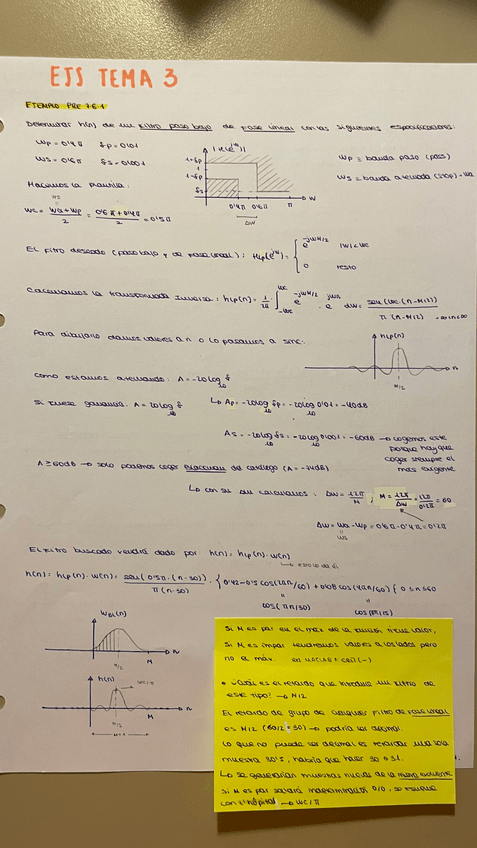 EJS TEMA 3
EJEMPLO PRE 7.6.1
Determinar h(n) de un filtro paso bajo de fase lineal con las siguientes especificaciones:
Wp = 0'4π δp = 0'01
Ws = 0'6π δs = 0'001
|H(e^jw)|
1+δp
1
1-δp
δs
0'4π 0'6π π w
Δw
Wp = banda paso (pass)
Ws = banda atenuada (stop) = Wa
Hacemos la plantilla:
ws
wc = (wa + wp)/2 = (0'6π + 0'4π)/2 = 0'5π
El filtro deseado (paso bajo y de fase lineal): Hlp(e^jw) = { e^-jwM/2 |w| < wc
0 resto
Calculamos la transformada inversa: hlp(n) = 1/2π · ∫ wc -wc e^-jwM/2 · e^jwn dw = sen(wc·(n-M/2)) / π(n-M/2) -∞<n<∞
Para dibujarlo damos valores a n o lo pasamos a sinc.
hlp(n)
n
M/2
Como estamos atenuando: A = -20log10 δ
Si fuese ganancia: A = 20log10 δ
↳ Ap = -20log10 δp = -20log10 0'01 = -40dB
As = -20log10 δs = -20log10 0'001 = -60dB → cogemos este
porque hay que
coger siempre el
más exigente
A ≥ 60dB → solo podemos coger Blackman del catálogo (A = -74dB)
↳ con su Δw calculamos: Δw = 12π/M ; M = 12π/Δw = 12π/0'2π = 60
Δw = wa - wp = 0'6π - 0'4π = 0'2π
ws
El filtro buscado vendrá dado por h(n) = hlp(n)·w(n)
h(n) = hlp(n)·w(n) = sen(0'5π·(n-30)) / π(n-30) · { 0'42 - 0'5 cos(2πn/60) + 0'08 cos(4πn/60) { 0≤n≤60
cos(πn/30) cos(πn/15)
WBl(n)
n
M/2 M
h(n)
wc/π
n
M/2 M
M+1
Si M es par en el máx de la función tiene valor,
Si M es impar tendremos valores a los lados pero
no el máx. en MATLAB = ceil(-)
• ¿Cuál es el retardo que introduce un filtro de
este tipo? → M/2
El retardo de grupo de cualquier filtro de fase lineal
es M/2 (60/2 = 30) → podría ser decimal
Lo que no puede ser decimal es retardar una sola
muestra 30'5, habría que hacer 30 o 31.
↳ se generarían muestras nuevas de la misma
Si M es par saldrá indeterminación 0/0, se resuelve
con l'hôpital → wc/π